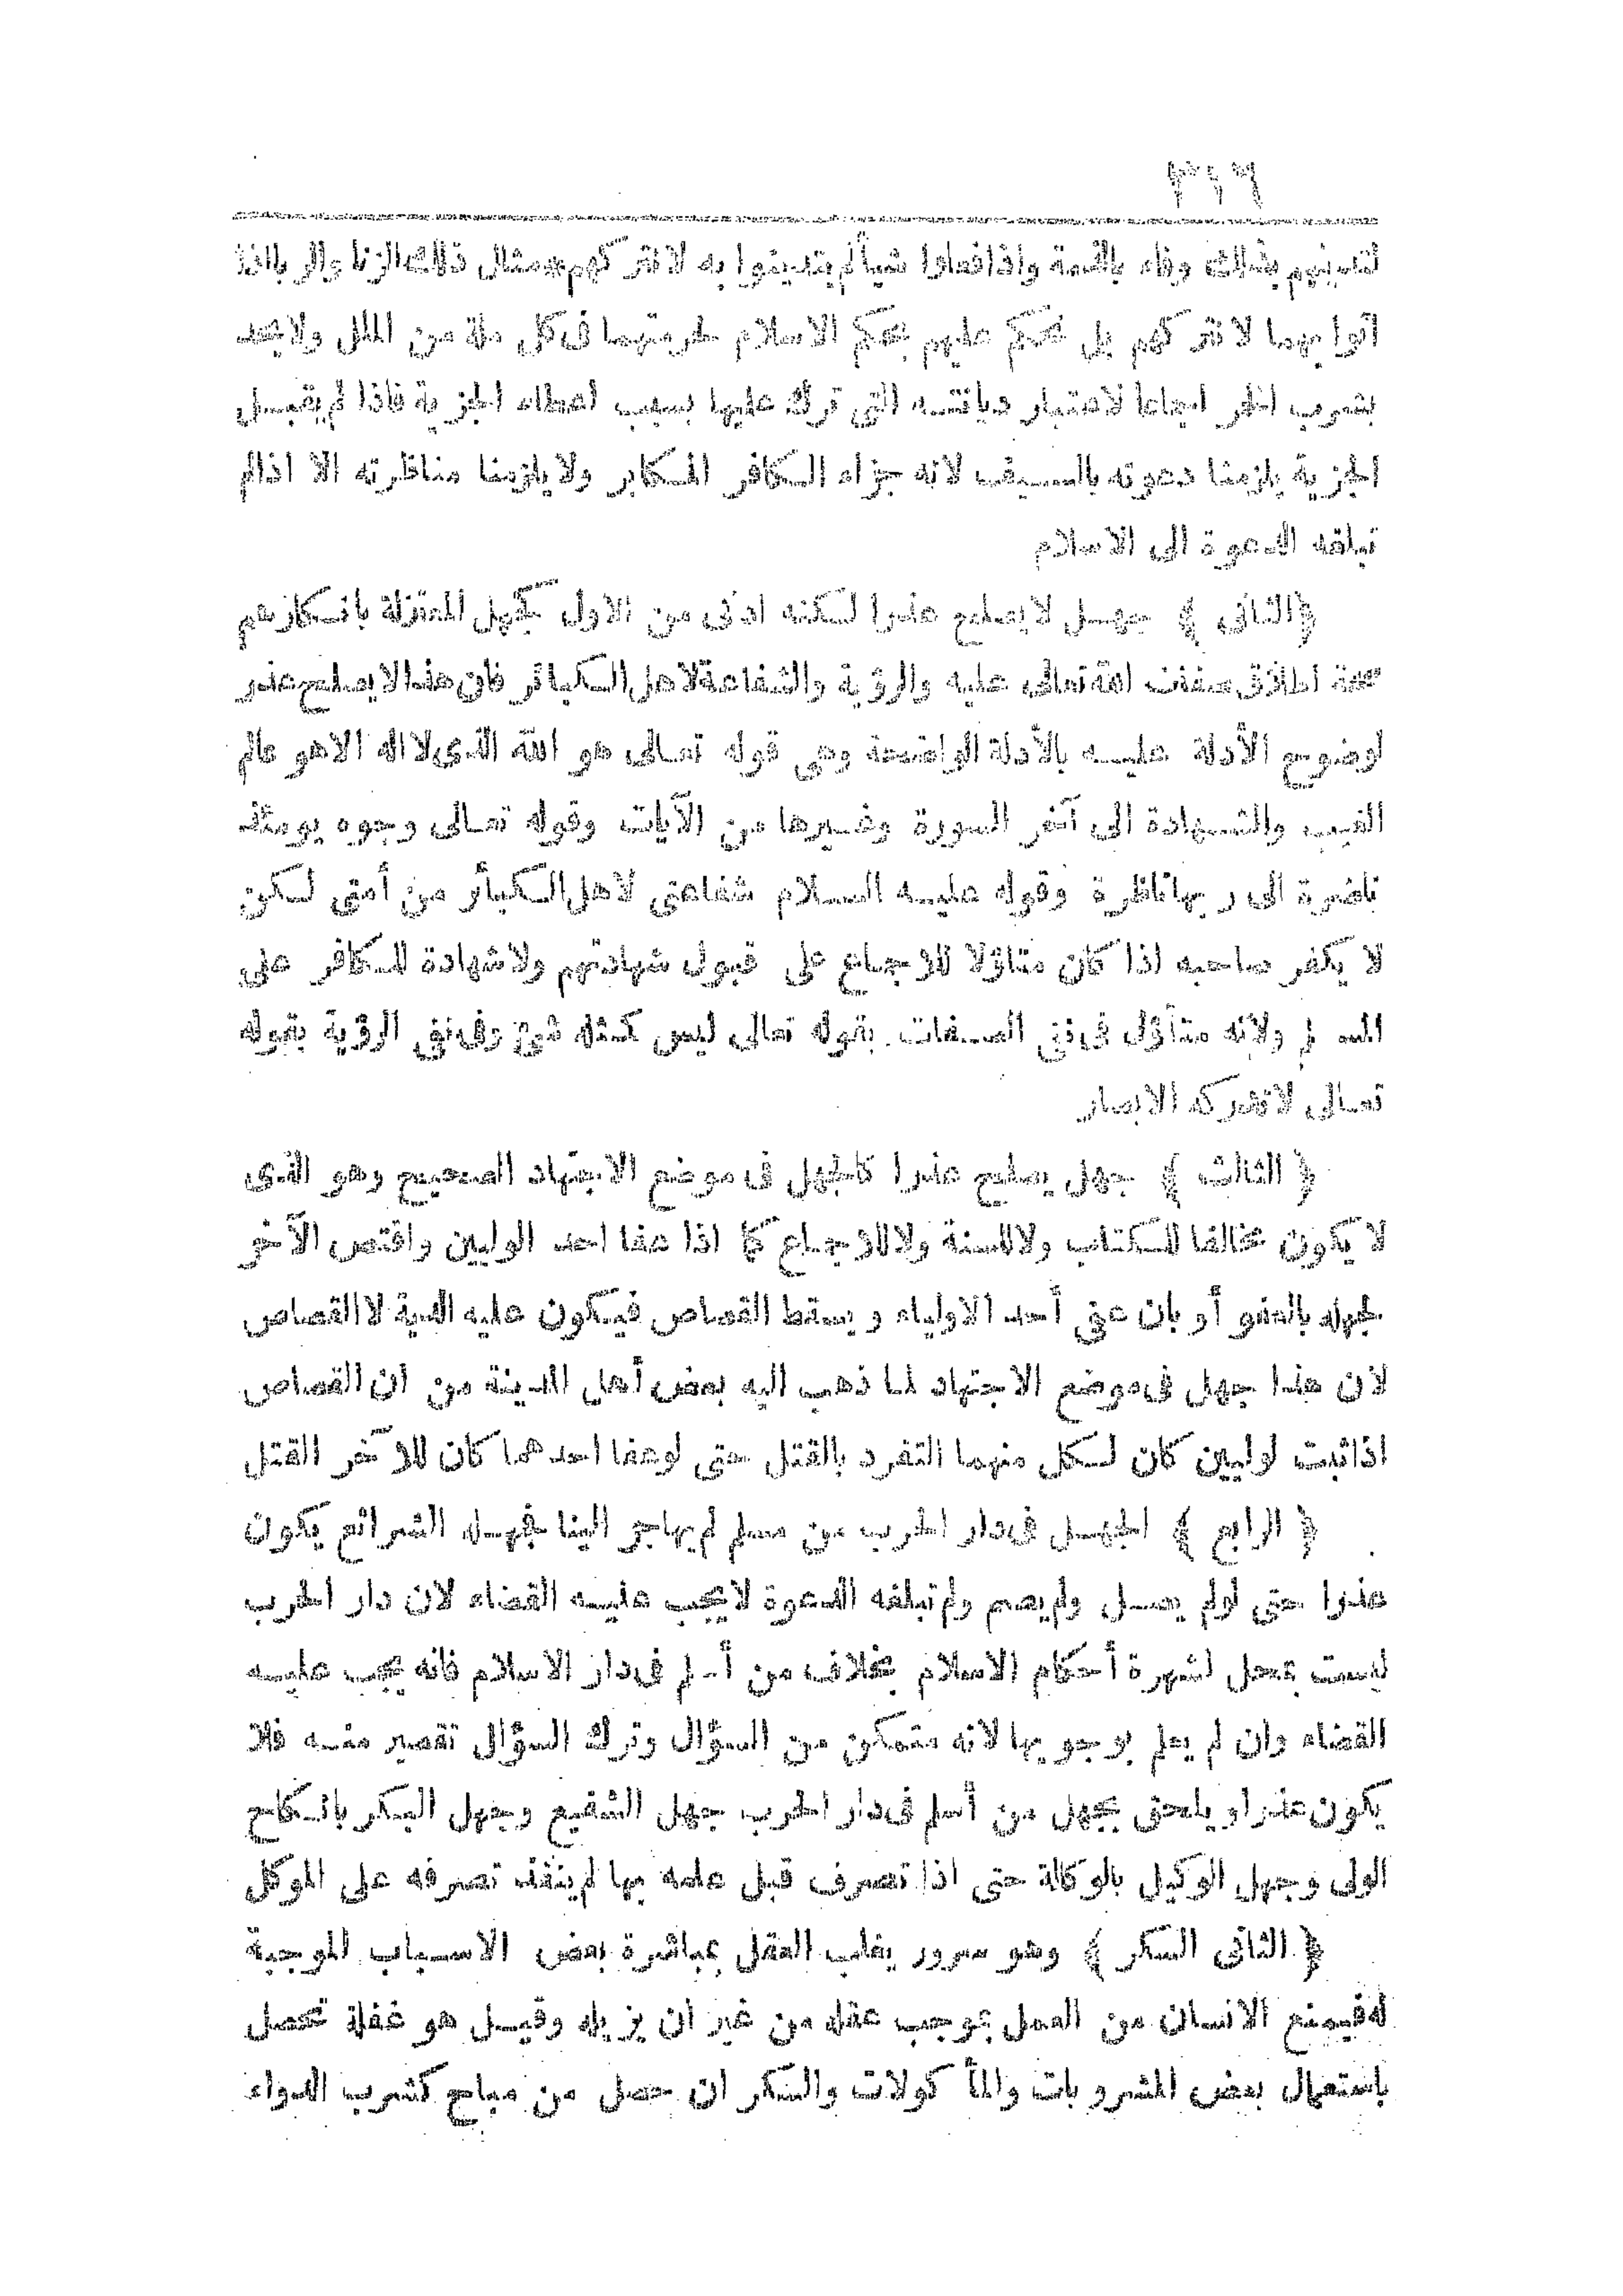 ٣١٦
لتدينهم بذلك وفاء بالذمة واذا فعلوا شيأ لم يتدينوا به لا نتركهم*مثال ذلك الزنا والربا اذا
أتوا بهما لا نتركهم بل نحكم عليهم بحكم الاسلام لحرمتهما فى كل ملة من الملل ولا يحد
بشرب الخمر اجماعا لاعتبار ديانته التى ترك عليها بسبب اعطاء الجزية فاذا لم يقبل
الجزية يلزمنا دعوته بالسيف لانه جزاء الكافر المكابر ولا يلزمنا مناظرته الا اذالم
تبلغه الدعوة الى الاسلام
﴿الثانى﴾ جهل لا يصلح عذرا لكنه ادنى من الاول كجهل المعتزلة بانكارهم
صحة اطلاق صفات الله تعالى عليه والرؤية والشفاعة لاهل الكبائر فان هذا لا يصلح عذر
لوضوح الأدلة عليه بالأدلة الواضحة وهى قوله تعالى هو الله الذى لا اله الا هو عالم
الغيب والشهادة الى آخر السورة وغيرها من الآيات وقوله تعالى وجوه يومئذ
ناضرة الى ربها ناظرة وقوله عليه السلام شفاعتى لاهل الكبائر من أمتى لكن
لا يكفر صاحبه اذا كان متاؤلا للاجماع على قبول شهادتهم ولا شهادة للكافر على
المسلم ولانه متأول فى نفى الصفات بقوله تعالى ليس كمثله شئ وفى نفى الرؤية بقوله
تعالى لا تدركه الابصار
﴿الثالث﴾ جهل يصلح عذرا كالجهل فى موضع الاجتهاد الصحيح وهو الذى
لا يكون مخالفا للكتاب ولا للسنة ولا للاجماع كما اذا عفا احد الوليين واقتص الآخر
لجهله بالعفو أو بان عفى أحد الاولياء ويسقط القصاص فيكون عليه الدية لا القصاص
لان هذا جهل فى موضع الاجتهاد لما ذهب اليه بعض أهل المدينة من ان القصاص
اذا ثبت لوليين كان لكل منهما التفرد بالقتل حتى لو عفا احدهما كان للآخر القتل
﴿الرابع﴾ الجهل فى دار الحرب من مسلم لم يهاجر الينا فجهله الشرائع يكون
عذرا حتى لو لم يصل ولم يصم ولم تبلغه الدعوة لا يجب عليه القضاء لان دار الحرب
ليست بمحل لشهرة أحكام الاسلام بخلاف من أسلم فى دار الاسلام فانه يجب عليه
القضاء وان لم يعلم بوجوبها لانه متمكن من السؤال وترك السؤال تقصير منه فلا
يكون عذرا ويلحق بجهل من أسلم فى دار الحرب جهل الشفيع وجهل البكر بانكاح
الولى وجهل الوكيل بالوكالة حتى اذا تصرف قبل علمه بها لم ينفذ تصرفه على الموكل
﴿الثانى السكر﴾ وهو سرور يغلب العقل بمباشرة بعض الاسباب الموجبة
له فيمنع الانسان من العمل بموجب عقله من غير ان يزيله وقيل هو غفلة تحصل
باستعمال بعض المشروبات والمأكولات والسكر ان حصل من مباح كشرب الدواء